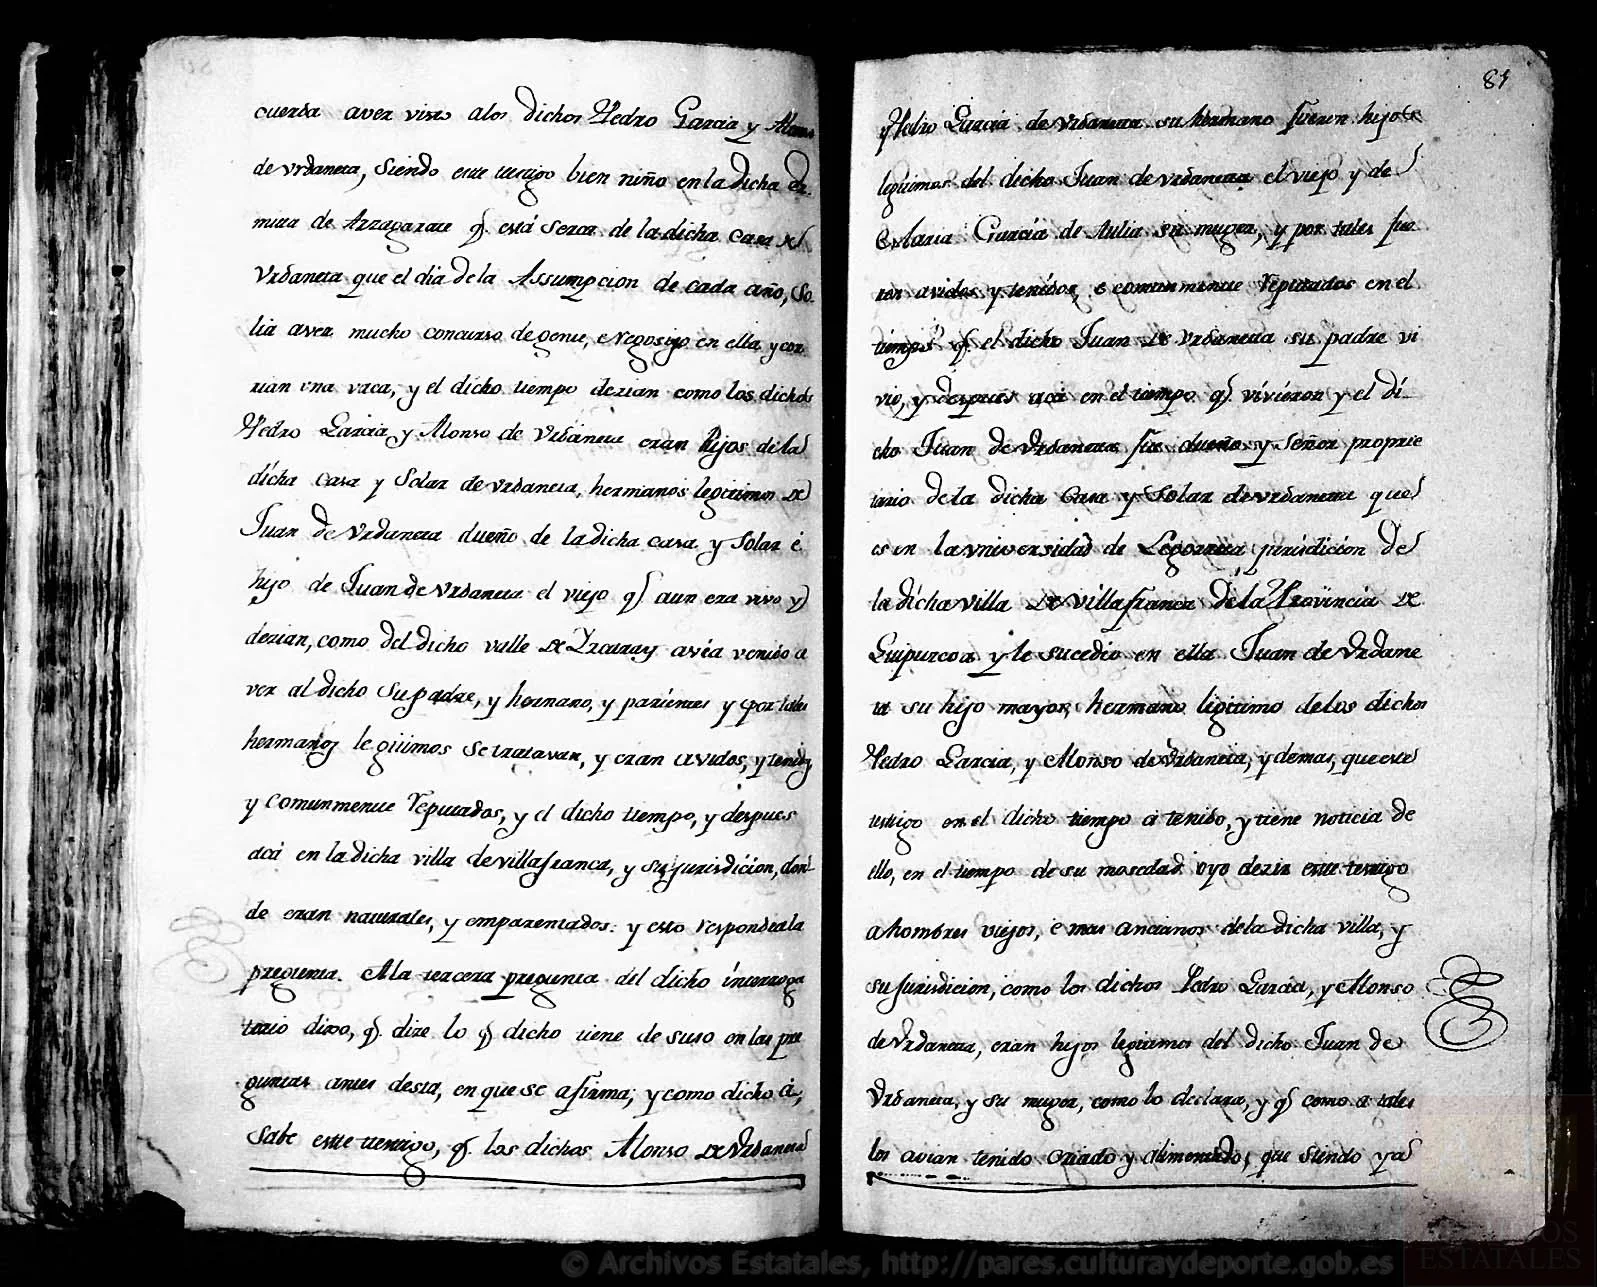 cuerda aver visto a los dichos Pedro Garcia y Alonso
de Vrdaneta, siendo este testigo bien niño en la dicha Er-
mita de Arragarate q. está serca de la dicha casa de
Vrdaneta que el dia de la Assumpcion de cada año, so-
lia aver mucho concurso de gente, e regosijo en ella y cor-
rian una vaca, y el dicho tiempo dezian como los dichos
Pedro Garcia y Alonso de Vrdaneta eran hijos de la
dicha casa y Solar de vrdaneta, hermanos legitimos de
Juan de Vrdaneta dueño de la dicha casa y Solar é
hijo de Juan de Vrdaneta el viejo q. aun era vivo y
dezian, como del dicho valle de Yzcaray avia venido a
ver al dicho su padre, y hermano, y parientes y por tales
hermanos legitimos se tratavan, y eran avidos, y tenidos
y comunmente reputados, y el dicho tiempo, y despues
acá en la dicha villa de villafranca, y su jurisdicion, don-
de eran naturales, y emparentados: y esto responde a la
pregunta. A la tercera pregunta del dicho interroga
torio dixo, q. dize lo q. dicho tiene de suso en las pre
guntas antes desta, en que se afirma; y como dicho á,
sabe este testigo, q. los dichos Alonso de Vrdaneta
81
y Pedro Garcia de Vrdaneta su hermano fueron hijos
legitimos del dicho Juan de vrdaneta el viejo y de
Maria Garcia de Aulia su muger, y por tales fue
ron avidos y tenidos, e comunmente reputados en el
tiempo q. el dicho Juan de Vrdaneta su padre vi
vio, y despues acá en el tiempo q. vivieron y el di-
cho Juan de Vrdaneta fue dueño y Señor proprie
tario de la dicha Casa y Solar de vrdaneta que
es en la vniversidad de Legorreta jurisdicion de
la dicha villa de villafranca de la Provincia de
Guipuzcoa y le sucedio en ella Juan de Vrdane
ta su hijo mayor, hermano ligitimo de los dichos
Pedro Garcia, y Alonso de Vrdaneta, y demas, que este
testigo en el dicho tiempo á tenido, y tiene noticia de
ello, en el tiempo de su mosedad oyo dezir este testigo
a hombres viejos, e mas ancianos de la dicha villa, y
su jurisdicion, como los dichos Pedro Garcia, y Alonso
de Vrdaneta, eran hijos legitimos del dicho Juan de
Vrdaneta, y su muger, como lo declara, y q. como a tales
los avian tenido criado y alimentado, que siendo ya
© Archivos Estatales, http://pares.culturaydeporte.gob.es
ESTATALES